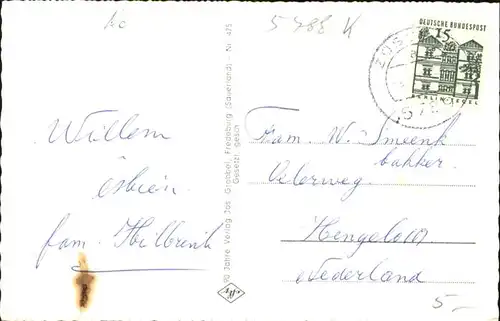 5788 K
DEUTSCHE BUNDESPOST
15
Willem
fam. Hilbrink
70 Jahre Verlag Jos. Grobbel, Fredeburg (Sauerland) - Nr. 475
Gesetzl. gesch.
Fam. W. Smeenk
bakker.
Oelerweg.
Hengelo (O)
Nederland
5-